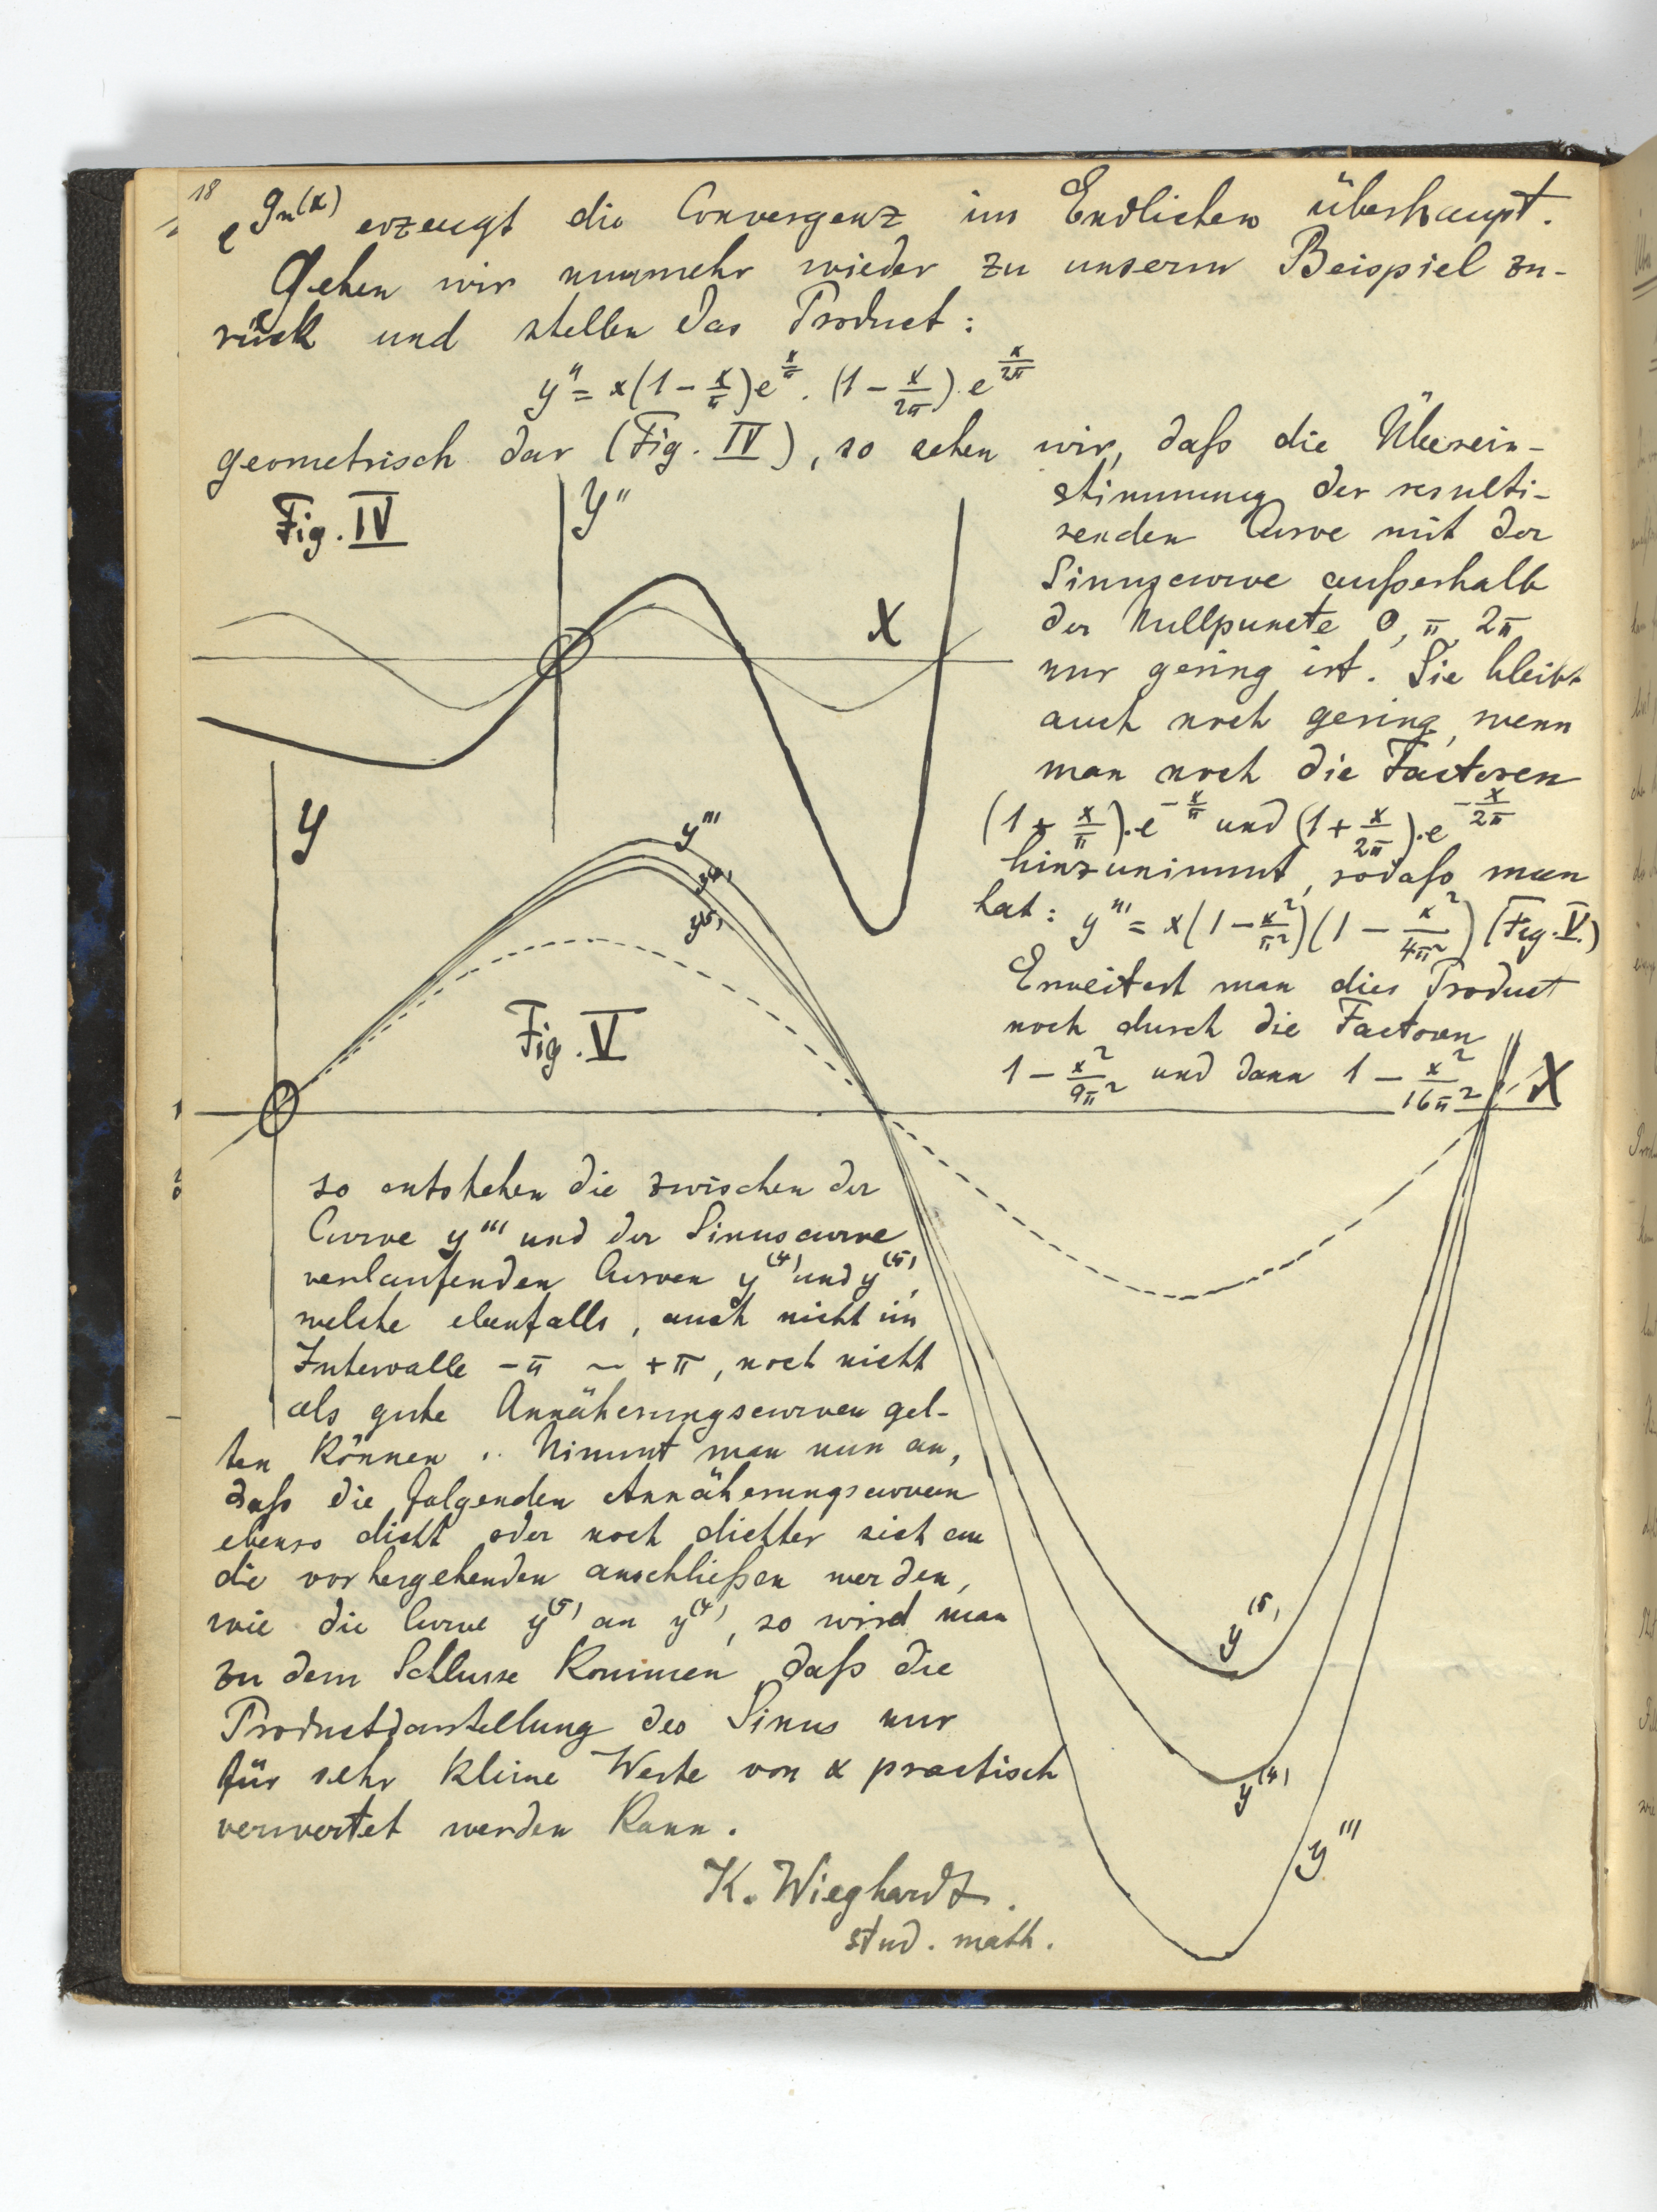 18
e^{g_n(x)} erzeugt die Convergenz im Endlichen überhaupt.
Gehen wir nunmehr wieder zu unserm Beispiel zu-
rück und stellen das Product:
y'' = x(1 - x/π)e^{x/π} . (1 - x/2π) . e^{x/2π}
geometrisch dar (Fig. IV), so sehen wir, daß die Überein-
stimmung der resulti-
renden Curve mit der
Sinuscurve außerhalb
der Nullpuncte 0, π, 2π
nur gering ist. Sie bleibt
auch noch gering, wenn
man noch die Factoren
(1 + x/π).e^{-x/π} und (1 + x/2π).e^{-x/2π}
hinzunimmt, sodaß man
hat: y''' = x(1 - x²/π²)(1 - x²/4π²) (Fig. V.)
Erweitert man dies Product
noch durch die Factoren
1 - x²/9π² und dann 1 - x²/16π²,
Fig. IV
y''
X
y
y'''
y(4)
y(5)
Fig. V
X
so entstehen die zwischen der
Curve y''' und der Sinuscurve
verlaufenden Curven y(4) und y(5),
welche ebenfalls, auch nicht im
Intervalle -π ~ +π, noch nicht
als gute Annäherungscurven gel-
ten können. Nimmt man nun an,
daß die folgenden Annäherungscurven
ebenso dicht oder noch dichter sich an
die vorhergehenden anschließen werden,
wie die Curve y(5) an y(4), so wird man
zu dem Schlusse kommen, daß die
Productdarstellung des Sinus nur
für sehr kleine Werte von x practisch
verwertet werden kann.
K. Wieghardt.
stud. math.
y(5)
y(4)
y'''